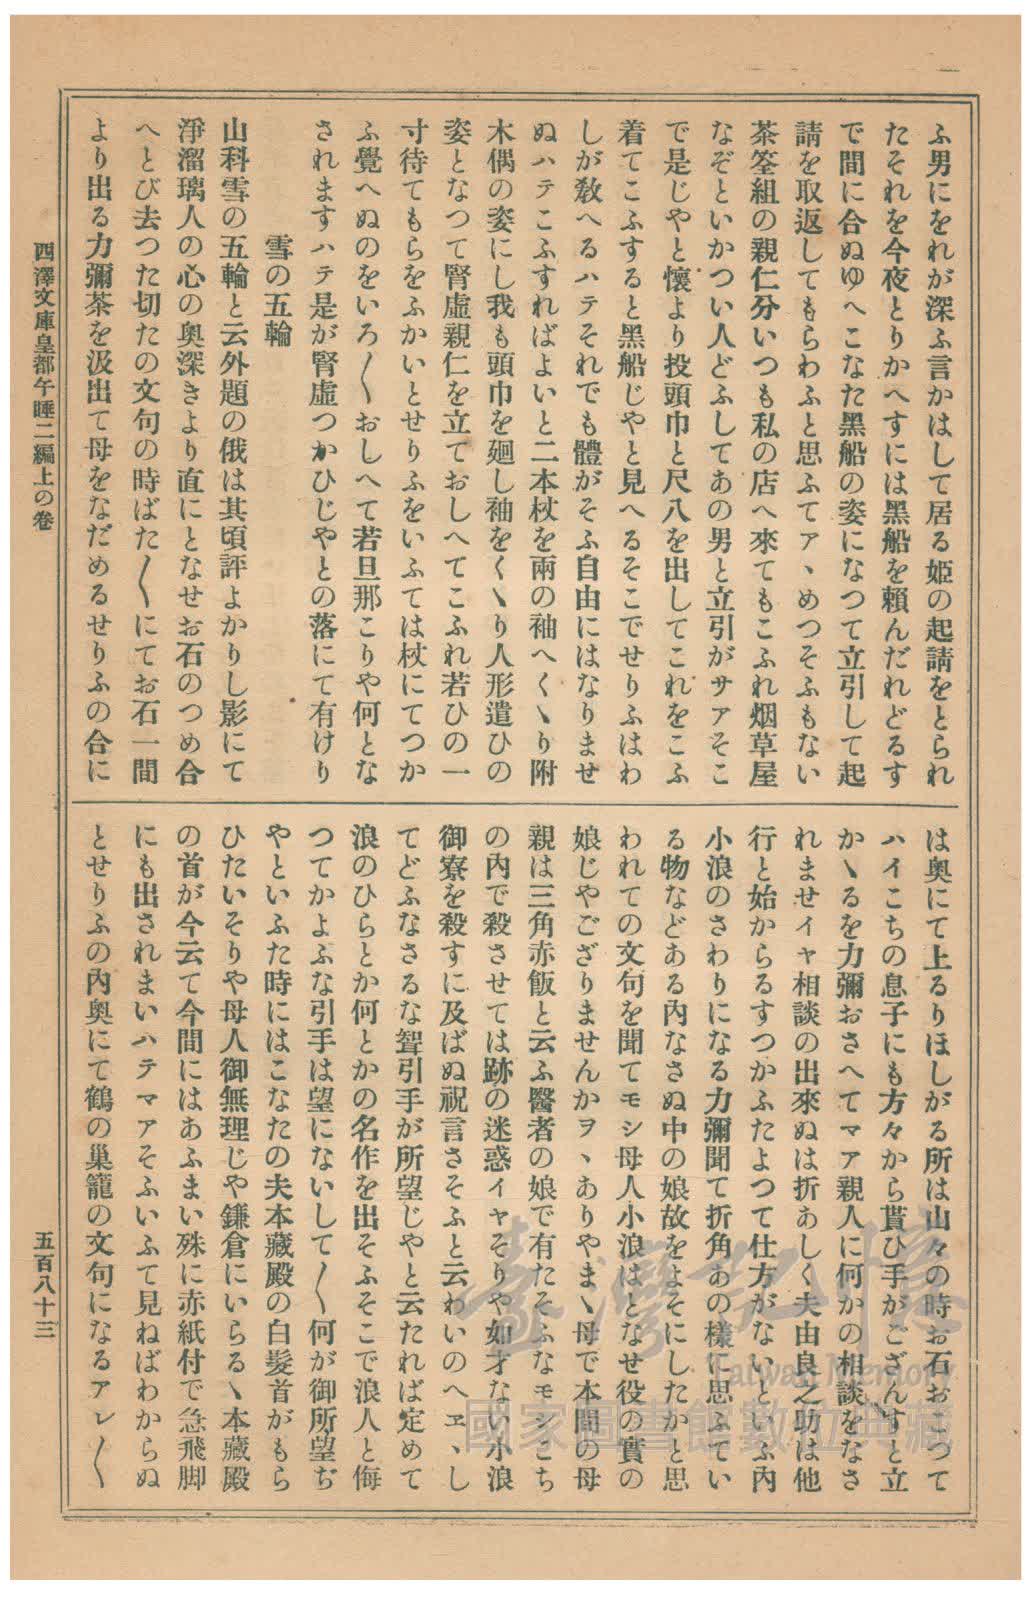 ふ男にをれが深ふ言かはして居る姫の起請をとられ
たそれを今夜とりかへすには黑船を賴んだれどるす
で間に合ぬゆへこなた黑船の姿になつて立引して起
請を取返してもらわふと思ふてアヽめつそふもない
茶筌組の親仁分いつも私の店へ來てもこふれ烟草屋
なぞといかつい人どふしてあの男と立引がサアそこ
で是じやと懷より投頭巾と尺八を出してこれをこふ
着てこふすると黑船じやと見へるそこでせりふはわ
しが敎へるハテそれでも體がそふ自由にはなりませ
ぬハテこふすればよいと二本杖を兩の袖へくヽり附
木偶の姿にし我も頭巾を廻し袖をくヽり人形遣ひの
姿となつて腎虛親仁を立ておしへてこふれ若ひの一
寸待てもらをふかいとせりふをいふては杖にてつか
ふ覺へぬのをいろ〱おしへて若旦那こりや何とな
されますハテ是が腎虛つかひじやとの落にて有けり
雪の五輪
山科雪の五輪と云外題の俄は其頃評よかりし影にて
淨溜璃人の心の奧深きより直にとなせお石のつめ合
へとび去つた切たの文句の時ばた〱にてお石一間
より出る力彌茶を汲出て母をなだめるせりふの合に
は奧にて上るりほしがる所は山々の時お石おこつて
ハイこちの息子にも方々から貰ひ手がござんすと立
かヽるを力彌おさへてマア親人に何かの相談をなさ
れませイヤ相談の出來ぬは折あしく夫由良之助は他
行と始からるすつかふたよつて仕方がないといふ內
小浪のさわりになる力彌聞て折角あの樣に思ふてい
る物などある內なさぬ中の娘故をよそにしたかと思
われての文句を聞てモシ母人小浪はとなせ役の實の
娘じやござりませんかヲヽありやまヽ母で本間の母
親は三角赤飯と云ふ醫者の娘で有たそふなモシこち
の內で殺させては跡の迷惑イヤそりや如才ない小浪
御寮を殺すに及ばぬ祝言さそふと云わいのヘヱヽし
てどふなさるな聟引手が所望じやと云たれば定めて
浪のひらとか何とかの名作を出そふそこで浪人と侮
つてかよふな引手は望にないして〱何が御所望ぢ
やといふた時にはこなたの夫本藏殿の白髮首がもら
ひたいそりや母人御無理じや鎌倉にいらるヽ本藏殿
の首が今云て今間にはあふまい殊に赤紙付で急飛脚
にも出されまいハテマアそふいふて見ねばわからぬ
とせりふの內奧にて鶴の巢籠の文句になるアレ〱
四澤文庫皇都午睡二編上の卷
五百八十三
臺灣記憶
Taiwan Memory
國家圖書館數位典藏